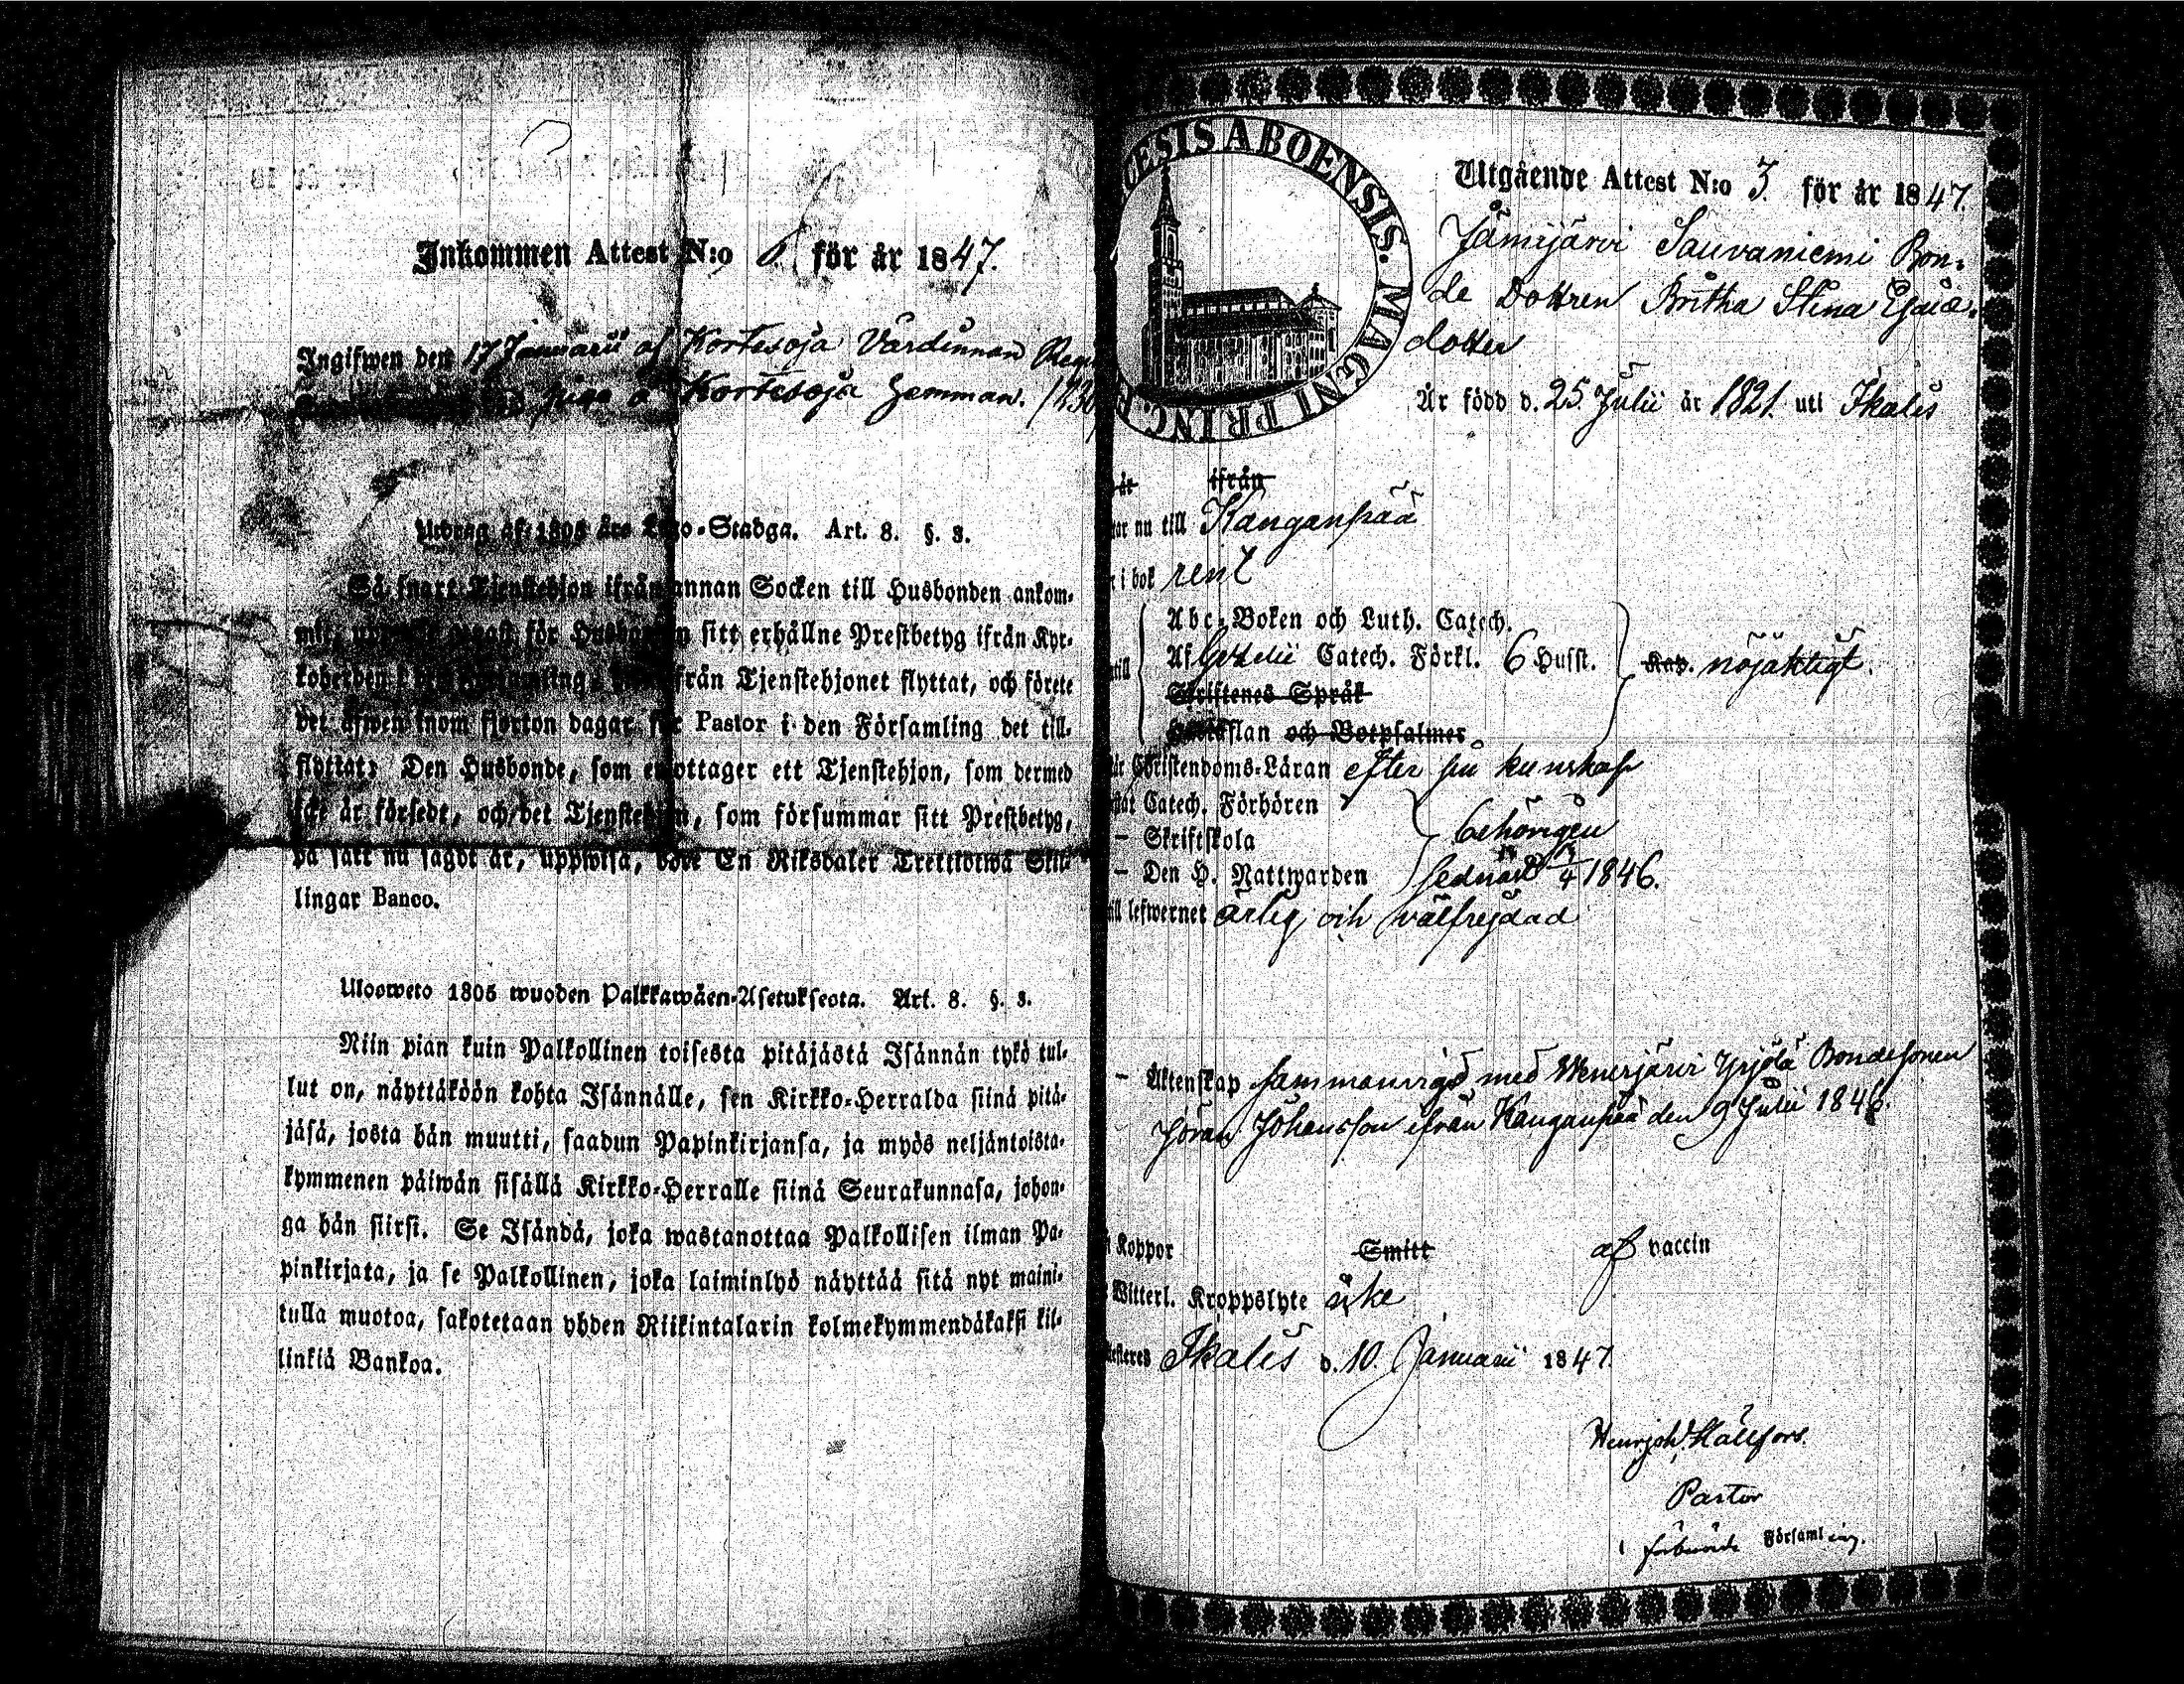 Inkommen Attest N:o för år 1847.
Ingifwen den 17 Januarii af Kortesoja Värdinnan
piga å Kortesoja hemman.
Utdrag af 1805 års Lego-Stadga. Art. 8. §. 3.
Så snart Tjenstehjon ifrån annan Socken till Husbonden ankom-
mit, för Husbonden sitt erhållne Prestbetyg ifrån Kyr-
koherden i den Församling, från Tjenstehjonet flyttat, och förete
det äfwen inom fjorton dagar för Pastor i den Församling det till-
flyttat. Den Husbonde, som emottager ett Tjenstehjon, som dermed
icke är försedt, och det Tjenstehjon, som försummar sitt Prestbetyg,
på sätt nu sagdt är, uppwisa, böte En Riksdaler Trettiotwå Skil-
lingar Banco.
Ulosweto 1805 wuoden Palkkawäen-Asetuksesta. Art. 8. §. 3.
Niin pian kuin Palkollinen toisesta pitäjästä Isännän tykö tul-
lut on, näyttäköön kohta Isännälle, sen Kirkko-Herralda siinä pitä-
jäsä, josta hän muutti, saadun Papinkirjansa, ja myös neljäntoista-
kymmenen päiwän sisällä Kirkko-Herralle siinä Seurakunnasa, johon-
ga hän siirsi. Se Isändä, joka wastanottaa Palkollisen ilman Pa-
pinkirjata, ja se Palkollinen, joka laiminlyö näyttää sitä nyt maini-
tulla muotoa, sakotetaan yhden Riikintalarin kolmekymmendäkaksi kil-
linkiä Bankoa.
CESIS ABOENSIS. MAGNI PRINC. F
Utgående Attest N:o 3. för år 1847
Jämijärvi Sauvaniemi Bon-
de Dottren Britha Stina Esaias-
dotter
Är född d. 25 Julii år 1821. uti Ikalis
år ifrån
nu till Kanganpää
i bok rent
Abc-Boken och Luth. Catech.
Af Gezelii Catech. Förkl. 6 Husst. Kap. nöjaktigt.
Skriftenes Språk
Hustaflan och Botpsalmer
Christendoms-Läran efter sin kunskap
Catech. Förhören
– Skriftskola behörigen
– Den H. Nattwarden sednast 1846.
lefwernet ärlig och välfrejdad
– Äktenskap sammanvigd med Venesjärvi Yrjölä Bondesonen
Jöran Johansson ifrån Kanganpää den 9 Julii 1846.
Koppor Smitt af vaccin
Witterl. Kroppslyte icke
Ikalis d. 10. Januarii 1847.
Pastor
i förberörde Församling.